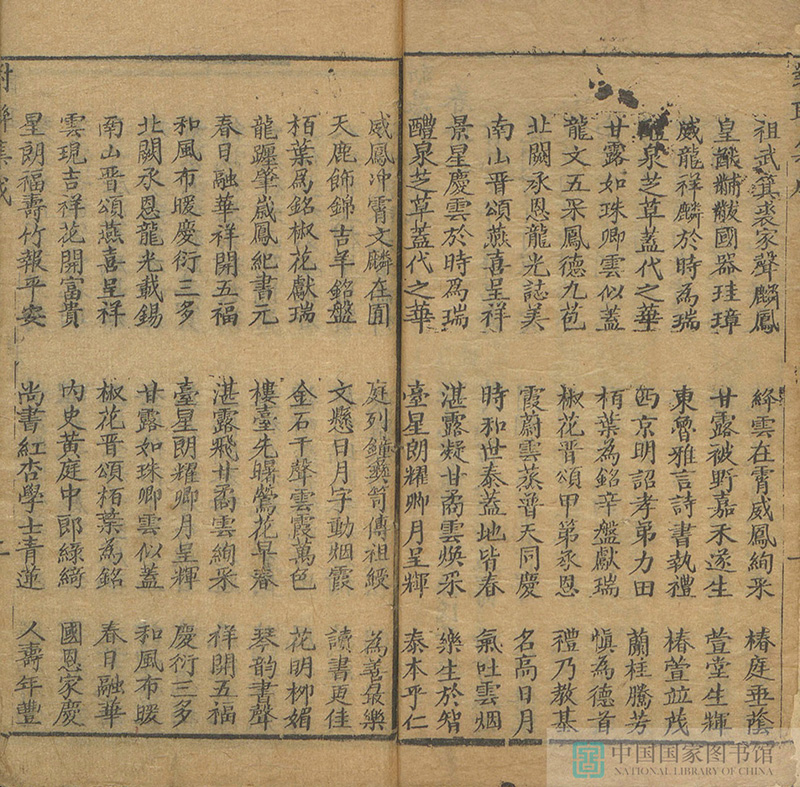 祖武箕裘家聲麟鳳　絳雲在霄威鳳絢采　椿庭垂蔭
皇猷黼黻國器珪璋　甘露被野嘉禾遂生　萱堂生輝
威龍祥麟於時為瑞　東魯雅言詩書執禮　椿萱並茂
泉芝草蓋代之華　西京明詔孝弟力田　蘭桂騰芳
甘露如珠卿雲似蓋　栢葉為銘辛盤獻瑞　愼為德首
龍文五采鳳德九苞　椒花晉頌甲第承恩　禮乃教基
北闕承恩龍光誌美　霞蔚雲蒸普天同慶　名高日月
南山晉頌燕喜呈祥　時和世泰蓋地皆春　氣吐雲烟
景星慶雲於時為瑞　湛露凝甘矞雲煥采　樂生於智
醴泉芝草蓋代之華　臺星朗耀卿月呈輝　泰本乎仁
威鳳冲霄文麟在囿　庭列鐘彝笥傳祖綬　為善最樂
天鹿飾錦吉羊銘盤　文懸日月字動烟霞　讀書更佳
栢葉為銘椒花獻瑞　金石千聲雲霞萬色　花明栁媚
龍躔肇歲鳳紀書元　樓臺先曙鶯花早春　琴韵書聲
春日融華祥開五福　湛露飛甘矞雲絢采　祥開五福
和風布暖慶衍三多　臺星朗耀卿月呈輝　慶衍三多
北闕承恩龍光載錫　甘露如珠卿雲似蓋　和風布暖
南山晉頌燕喜呈祥　椒花晉頌栢葉為銘　春日融華
雲現吉祥花開富貴　內史黃庭中郎綠綺　國恩家慶
星朗福壽竹報平安　尚書紅杏學士青蓮　人壽年豐
对聯集成
中国国家图书馆
NATIONAL LIBRARY OF CHINA